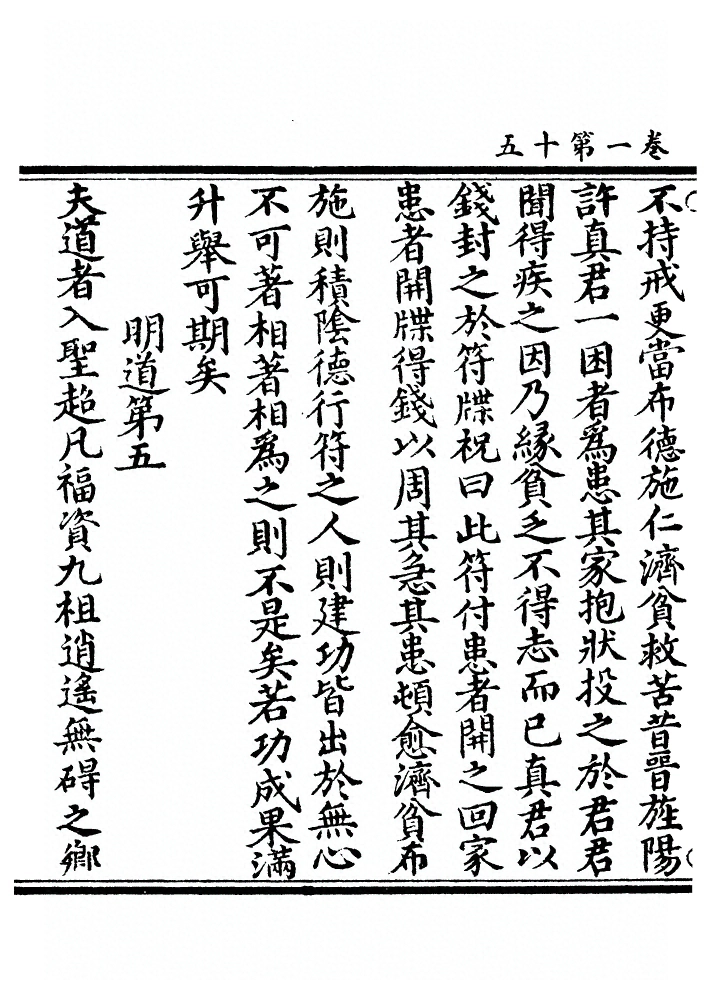 五十第一卷
不持戒更當布德施仁濟貧救苦昔晉旌陽
許真君一困者為患其家抱狀投之於君君
聞得疾之因乃緣貧乏不得志而已真君以
錢封之於符牒祝曰此符付患者開之回家
患者開牒得錢以周其急其患頓愈濟貧布
施則積陰德行符之人則建功皆出於無心
不可著相著相為之則不是矣若功成果滿
升舉可期矣
明道第五
夫道者入聖超凡福資九祖逍遙無碍之鄉